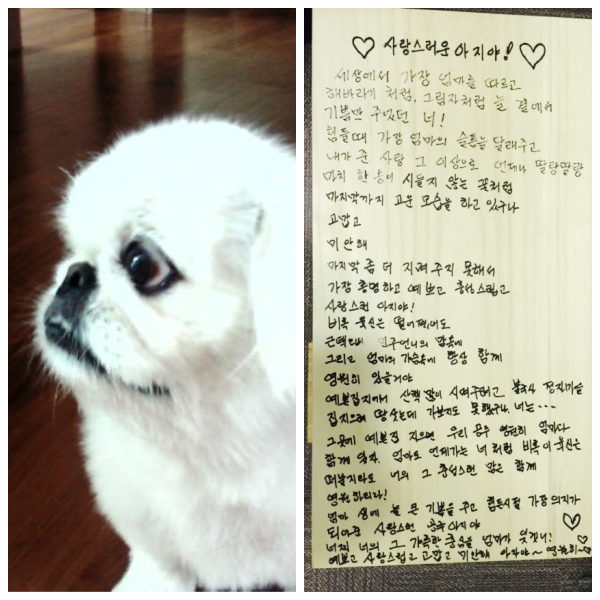 ♡ 사랑스러운 아지야! ♡
세상에서 가장 엄마를 따르고
해바라기 처럼, 그림자처럼 늘 곁에서
기쁨만 주었던 너!
힘들때 가장 엄마의 슬픔을 달래주고
내가 준 사랑 그 이상으로 언제나 딸랑딸랑
마치 한 송이 시들지 않는 꽃처럼
마지막까지 고운 모습을 하고 있구나
고맙고
미안해
마지막 좀 더 지켜주지 못해서
가장 총명하고 예쁘고 충성스럽고
사랑스런 아지야!
비록 육신은 떨어져있어도
언니의 맘속에
그리고 엄마의 가슴속에 항상 함께
영원히 있을거야
예쁜집지어서 산책 많이 시켜주려고
집지으려 땅샀는데 가보지도 못했구나. 너는...
그곳에 예쁜집 지으면 우리 공주 영원히 엄마랑
함께 살자. 엄마도 언젠가는 너처럼 비록 이 육신은
떠날지라도 너의 그 충성스런 맘은 함께
영원하리라!
엄마 생에 늘 큰 기쁨을 주고 힘든시절 가장 의지가
되어준 사랑스런 공주 아지야
너의 그 갸륵한 충심을 엄마가 잊겠니!
예쁘고 사랑스럽고 고맙고 미안해 아지야~ 영원히~